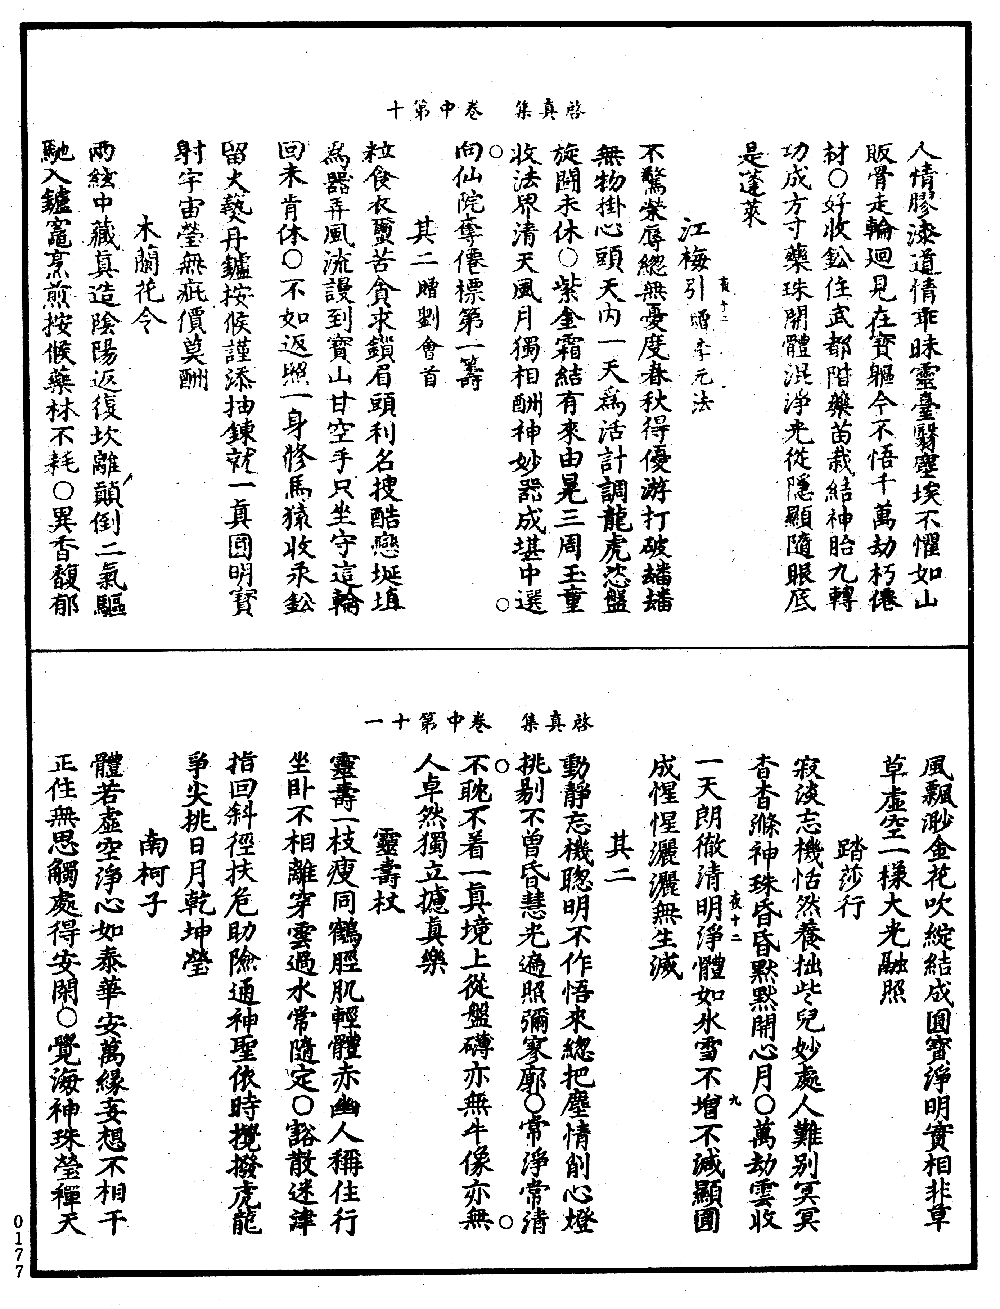 啓真集　卷中第十
人情膠漆道情乖昧靈臺翳塵埃不懼如山
販骨走輪迴見在寶軀今不悟千萬劫朽僊
材○好收鈆住武都階藥苗栽結神胎九轉
功成方寸藥珠開體混淨光從隱顯隨眼底
是蓬萊
江梅引贈李元法
不驚榮辱緫無憂度春秋得優游打破䗫䗫
無物掛心頭天內一天爲活計調龍虎恣盤
旋關未休○紫金霜結有來由晃三周玉童
收法界清天風月獨相酬神妙器成堪中選○
○向仙院奪僊標第一籌
其二贈劉會首
粒食衣蠒苦貪求鎖眉頭利名搜酷戀埏埴
爲器弄風流謾到寶山甘空手只坐守這輪
回未肯休○不如返照一身修馬猿收汞鈆
留火藝丹鑪按候謹添抽鍊就一真圓明寶
射宇宙瑩無疵價莫酬
木蘭花令
兩絃中藏真造陰陽返復坎離顛倒二氣驅
馳入鑪竈烹煎按候藥林不耗○異香馥郁
夜十二
啓真集　卷中第十一
風飄渺金花吹綻結成圓寶淨明實相非草
草虛空一樣大光融照
踏莎行
寂淡忘機恬然養拙些兒妙處人難别冥冥
杳杳滌神珠昏昏默默開心月○萬劫雲收
一天朗徹清明淨體如氷雪不增不減顯圓
成惺惺灑灑無生滅
其二
動靜忘機聰明不作悟來緫把塵情削心燈
挑剔不曾昏慧光遍照彌寥廓○常淨常清
○不耽不着一真境上從盤礴亦無牛像亦無○
人卓然獨立摅真樂
靈壽杖
靈壽一枝瘦同鶴脛肌輕體赤幽人稱住行
坐卧不相離穿雲過水常隨定○豁散迷津
指回斜徑扶危助險通神聖依時攪撥虎龍
爭尖挑日月乾坤瑩
南柯子
體若虛空淨心如泰華安萬緣妄想不相干
正住無思觸處得安閑○覺海神珠瑩禪天
夜十二
九
0177